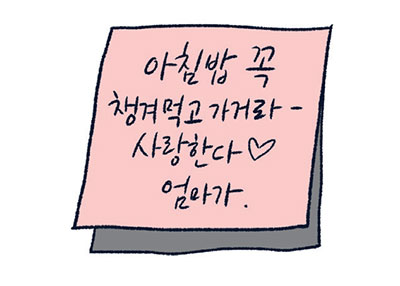 아침밥 꼭
챙겨먹고 가거라 -
사랑한다♡
엄마가.